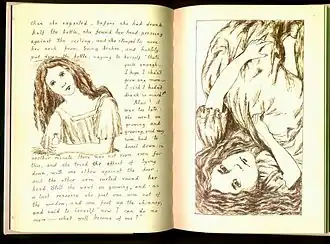 than she expected. before she had drunk
half the bottle, she found her head pressing
against the ceiling, and she stooped to save
her neck from being broken, and hastily
put down the bottle, saying to herself "that's
quite enough—
I hope I shan't
grow any more—
I wish I hadn't
drunk so much!"
Alas! it
was too late:
she went on
growing and
growing, and very
soon had to
kneel down: in
another minute there was not room even for
this, and she tried the effect of lying
down, with one elbow against the door,
and the other arm curled round her
head. Still she went on growing, and, as
a last resource she put one arm out of
the window, and one foot up the chimney,
and said to herself "now I can do no
more— what will become of me?"